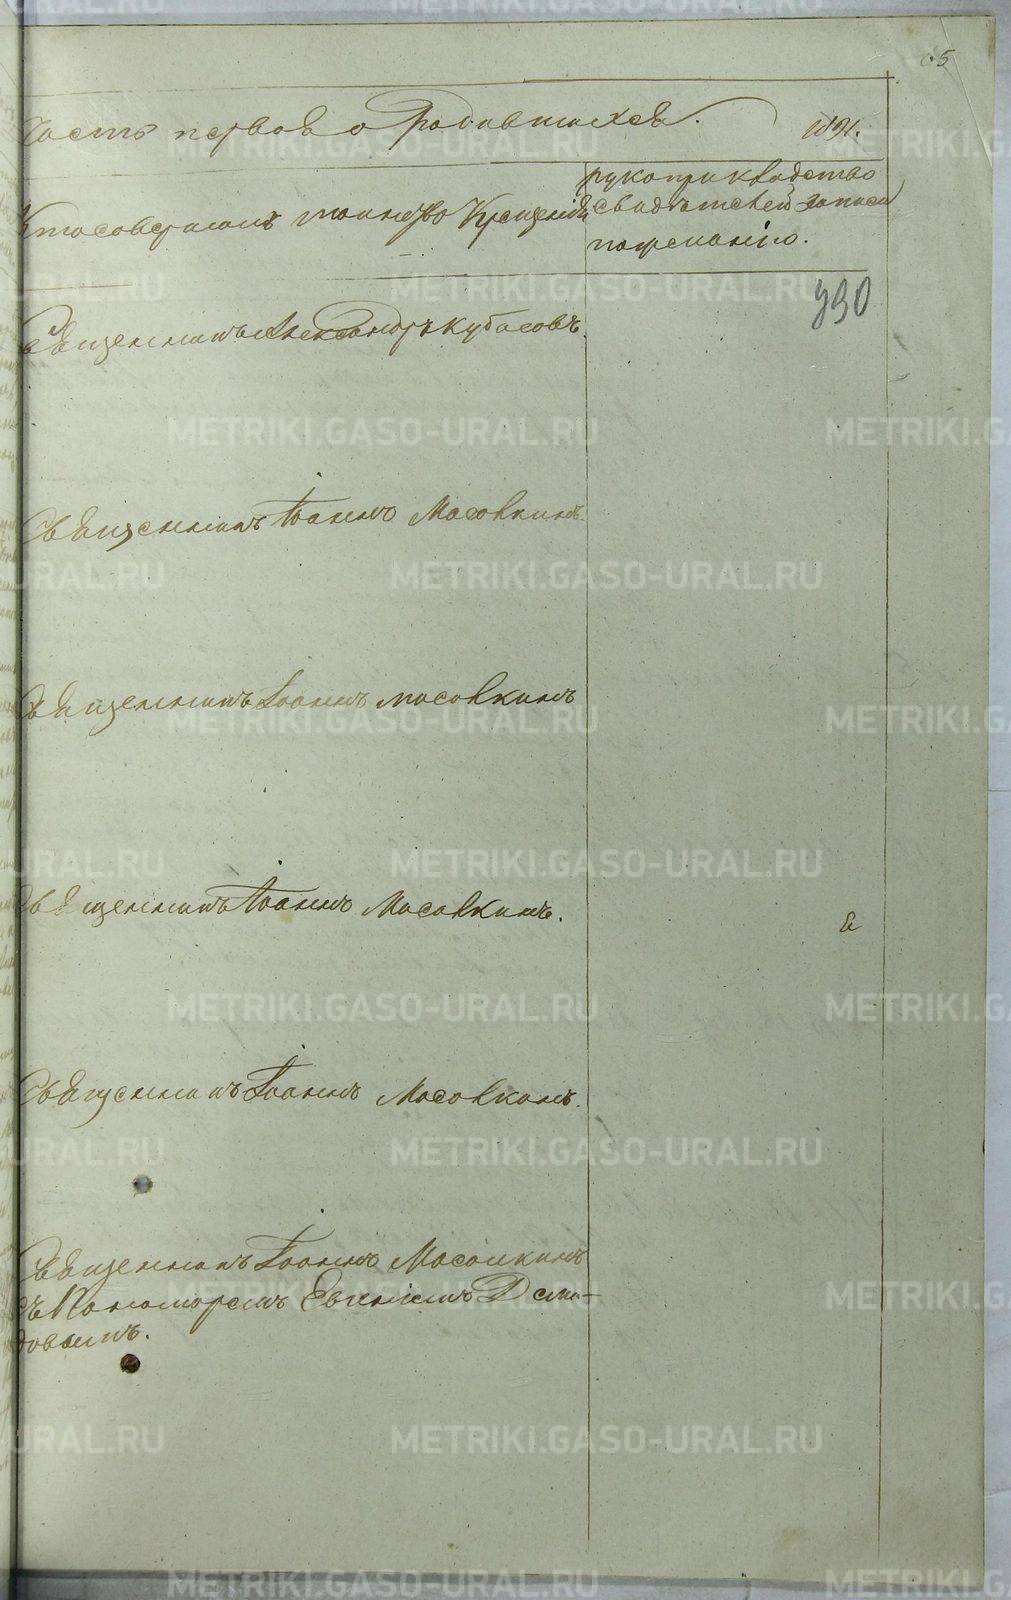 5
Часть первоя о Родившихся. 1891.
Кто совершалъ таинство Крещенія
рукоприкладство
свидѣтелей записи
по желанію.
390
Священникъ Александръ Кубасовъ.
Священникъ Іоаннъ Масовкинъ.
Священникъ Іоаннъ Масовкинъ
Священникъ Іоаннъ Масовкинъ.
Священникъ Іоаннъ Масовкинъ.
Священникъ Іоаннъ Масолкинъ
съ Пономаремъ Евгеніемъ Деми-
довымъ.
METRIKI.GASO-URAL.RU